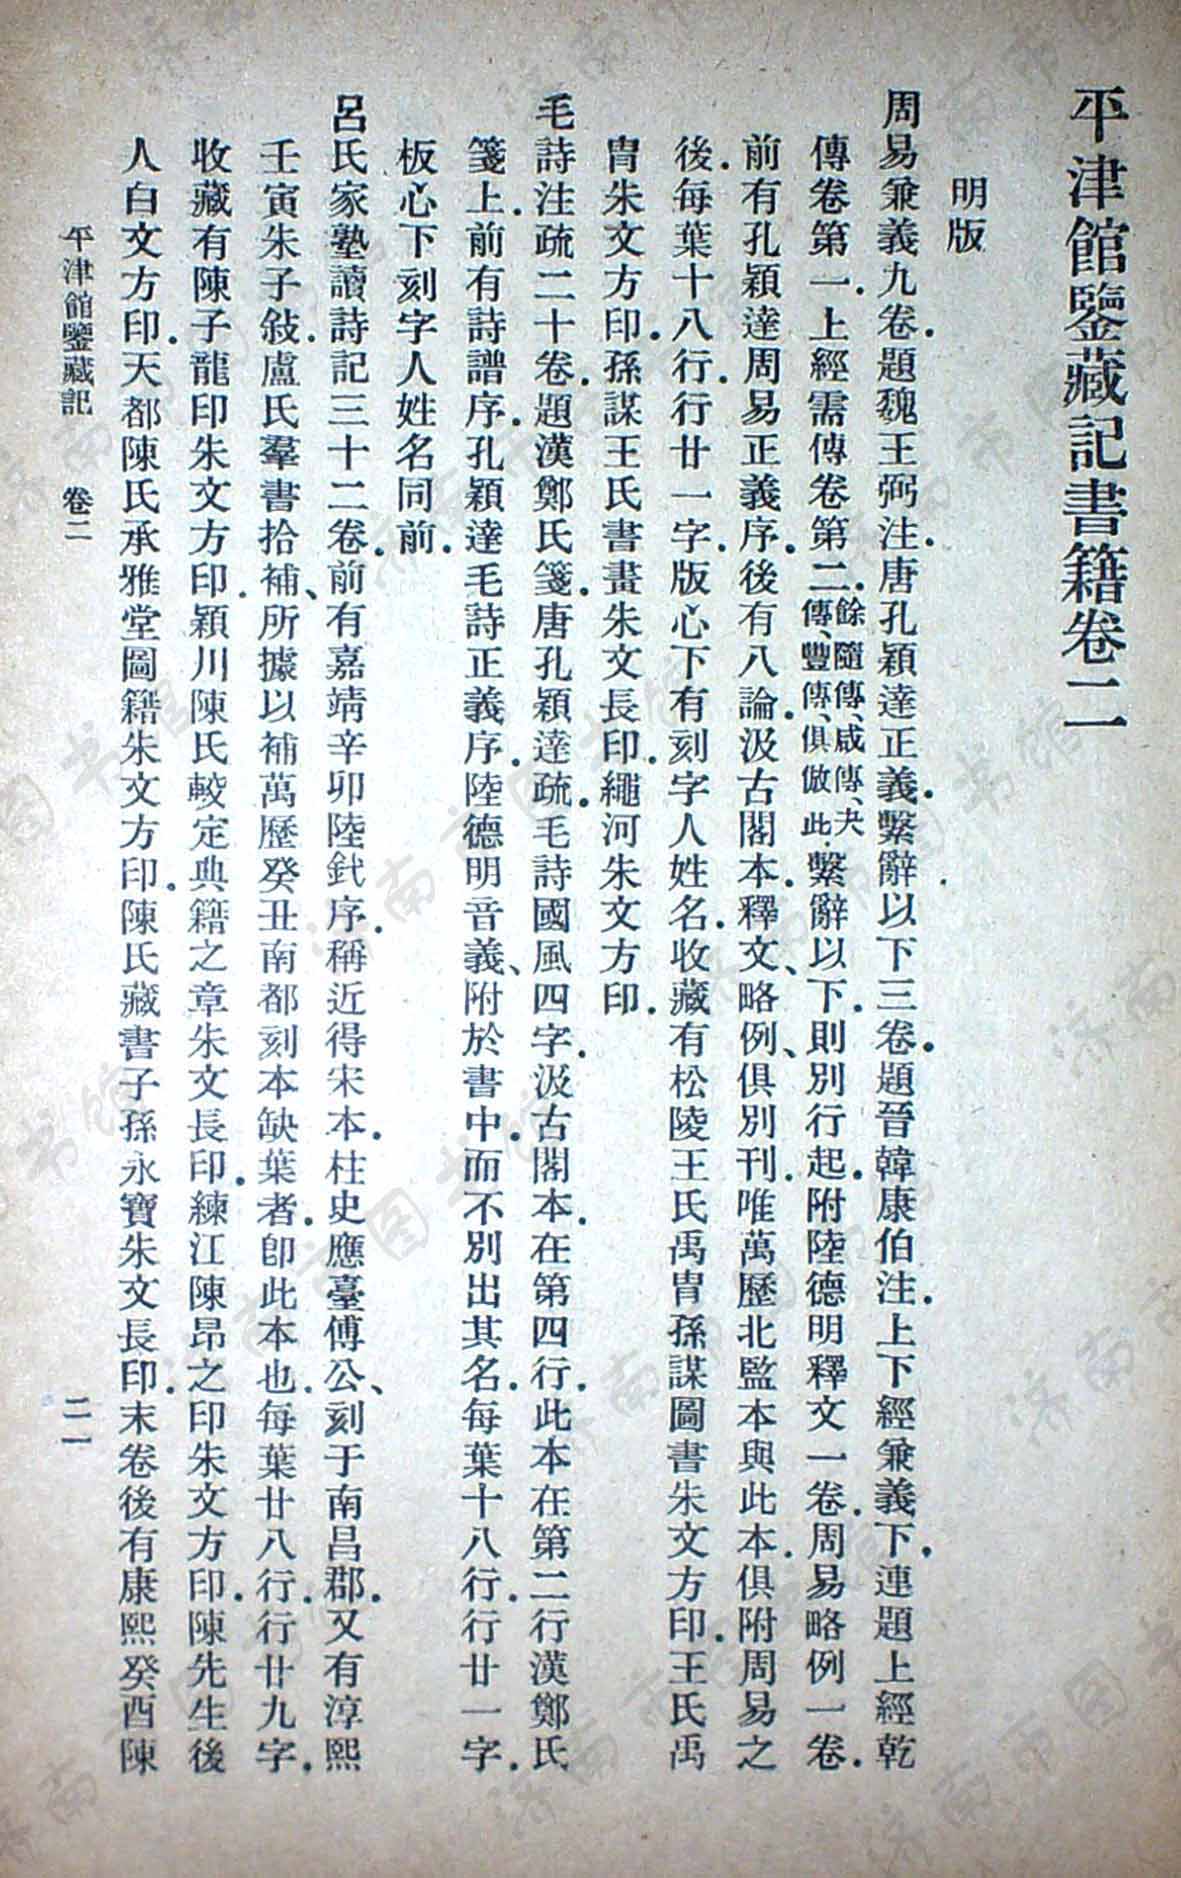 平津館鑒藏記書籍卷二
明版
周易兼義九卷．題魏王弼注．唐孔穎達正義．繫辭以下三卷．題晉韓康伯注．上下經兼義下．連題上經乾
傳卷第一．上經需傳卷第二．餘隨傳、咸傳、夬傳、豐傳、俱倣此．繫辭以下．則別行起．附陸德明釋文一卷．周易略例一卷．
前有孔穎達周易正義序．後有八論．汲古閣本．釋文、略例、俱別刊．唯萬歷北監本與此本．俱附周易之
後．每葉十八行．行廿一字．版心下有刻字人姓名．收藏有松陵王氏禹胄孫謀圖書朱文方印．王氏禹
胄朱文方印．孫謀王氏書畫朱文長印．繩河朱文方印．
毛詩注疏二十卷．題漢鄭氏箋．唐孔穎達疏．毛詩國風四字．汲古閣本．在第四行．此本在第二行漢鄭氏
箋上．前有詩譜序．孔穎達毛詩正義序．陸德明音義、附於書中．而不別出其名．每葉十八行．行廿一字．
板心下刻字人姓名同前．
呂氏家塾讀詩記三十二卷．前有嘉靖辛卯陸釴序．稱近得宋本．柱史應臺傅公、刻于南昌郡．又有淳熙
壬寅朱子敍．盧氏羣書拾補、所據以補萬歷癸丑南都刻本缺葉者．卽此本也．每葉廿八行．行廿九字．
收藏有陳子龍印朱文方印．穎川陳氏較定典籍之章朱文長印．練江陳昂之印朱文方印．陳先生後
人白文方印．天都陳氏承雅堂圖籍朱文方印．陳氏藏書子孫永寶朱文長印．末卷後有康熙癸酉陳
平津館鑒藏記　卷二　二一
济南市图书馆